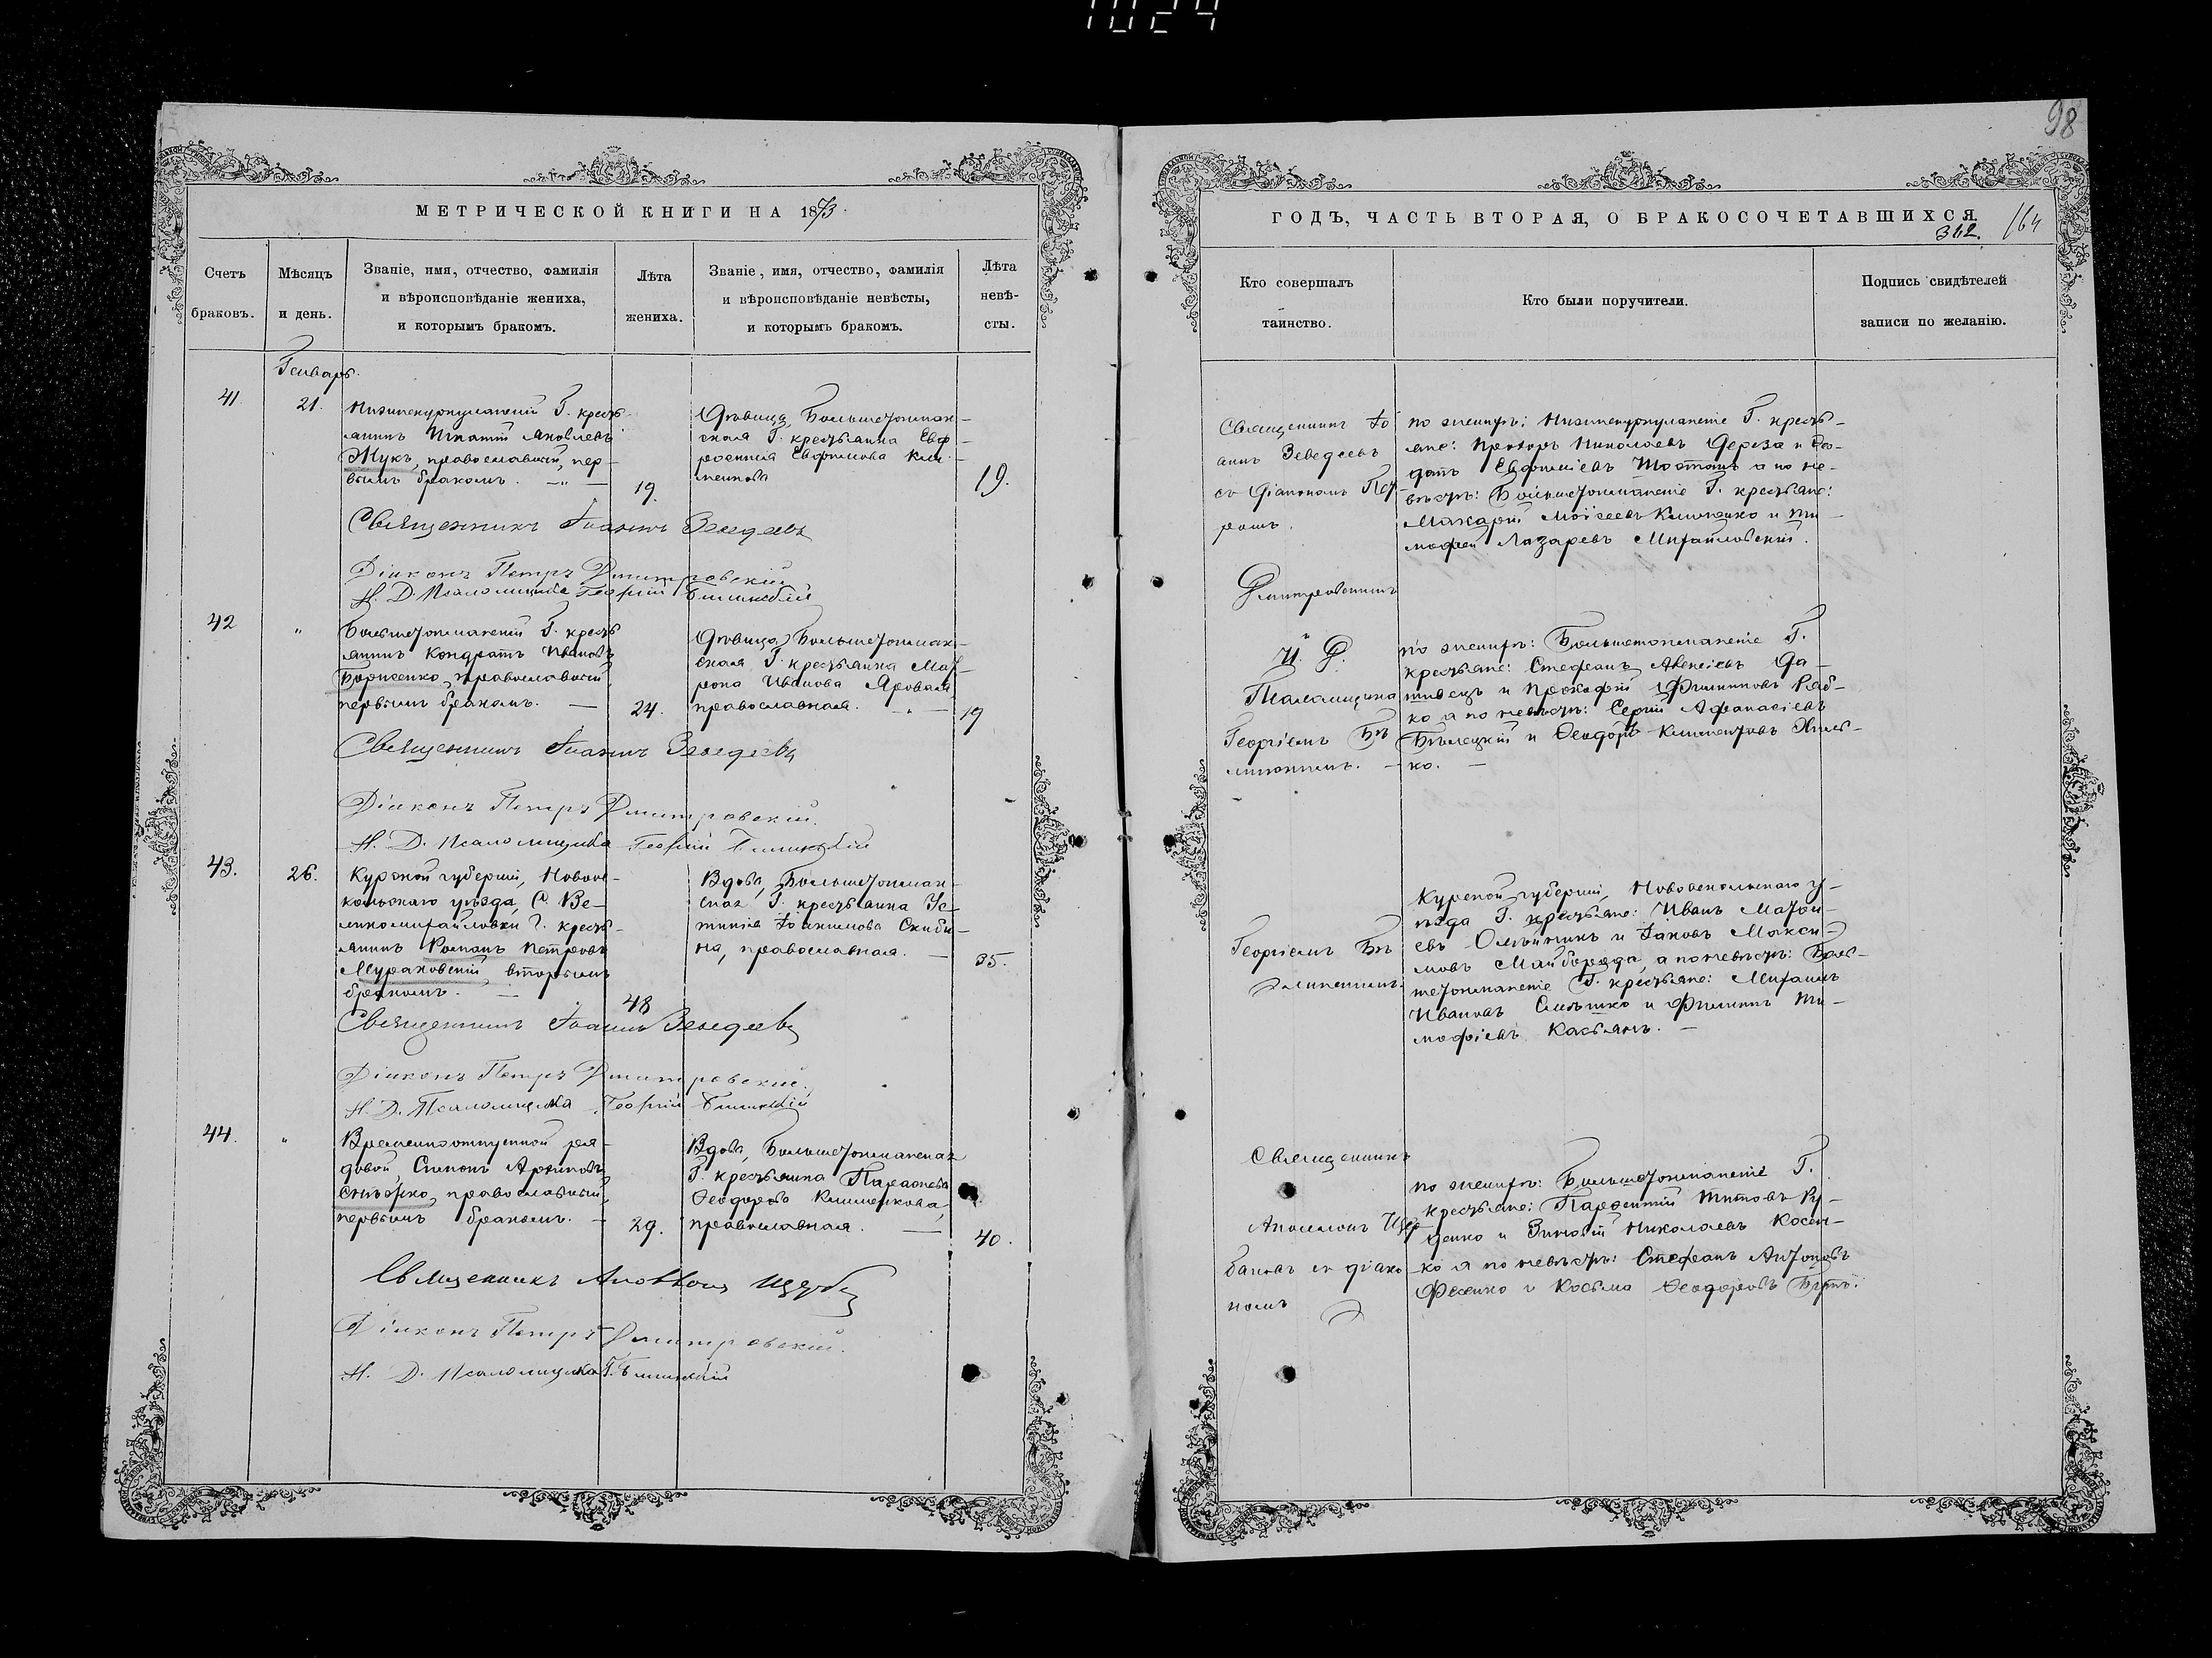 1024
98
МЕТРИЧЕСКОЙ КНИГИ НА 1873.
Счетъ
браковъ.
Мѣсяцъ
и день.
Званіе, имя, отчество, фамилія
и вѣроисповѣданіе жениха,
и которымъ бракомъ.
Лѣта
жениха.
Званіе, имя, отчество, фамилія
и вѣроисповѣданіе невѣсты,
и которымъ бракомъ.
Лѣта
невѣ-
сты.
Генварь.
41.
21.
Г. кресть-
янинъ Игнатій Яковлевъ
Жукъ, православный, пер-
вымъ бракомъ.
19.
Дѣвица, Большетокмак-
ская Г. крестьянка Евф-
росинія Евфимова Кли-
менкова
19.
Священникъ Іоаннъ Зеведеевъ
Діаконъ Петръ Дмитровскій
И. Д. Псаломщика Георгій
42
"
Большетокмакскій Г. кресть
янинъ Кондратъ Ивановъ
Борисенко, православный
первымъ бракомъ. —
24.
Дѣвица, Большетокмак-
ская Г. крестьянка Мат-
рона Иванова Яровая
православная.
19
Священникъ Іоаннъ Зеведеевъ
Діаконъ Петръ Дмитровскій.
И. Д. Псаломщика Георгій
43.
26.
Курской губерніи, Новоос-
кольскаго уѣзда, С. Ве-
ликомихайловки Г. кресть-
янинъ Романъ Петровъ
Мураховскій, вторымъ
бракомъ. —
48
Вдова, Большетокмак-
ская Г. крестьянка Ус-
тинія Іоакимова Скиби-
на, православная. —
35.
Священникъ Іоаннъ Зеведеевъ
Діаконъ Петръ Дмитровскій.
И. Д. Псаломщика Георгій
44.
"
Временноотпускной ря-
довой, Симонъ Архиповъ
православный,
первымъ бракомъ. —
29.
Вдова, Большетокмакская
Г. крестьянка Параскева
Ѳеодорова Клименкова,
православная. —
40.
Священникъ
Діаконъ Петръ Дмитровскій.
И. Д. Псаломщика Г.
ГОДЪ, ЧАСТЬ ВТОРАЯ, О БРАКОСОЧЕТАВШИХСЯ.
312.
164
Кто совершалъ
таинство.
Кто были поручители.
Подпись свидѣтелей
записи по желанію.
Священникъ Іо
аннъ Зеведеевъ
съ діакономъ Пет-
ромъ
Дмитровскимъ
по женихѣ: Г. кресть-
яне: Прохоръ Николаевъ Дереза и
Евфиміевъ а по не-
вѣстѣ: Большетокмакскіе Г. крестьяне:
Макарій Моисеевъ Клименко и Ти-
мофей Лазаревъ Михайловскій.
И. Д.
Псаломщика
Георгіемъ
по женихѣ: Большетокмакскіе Г.
крестьяне: Стефанъ
и Прокофій Филипповъ Ряб-
ко а по невѣстѣ: Сергій Афанасіевъ
Бѣлецкій и Ѳеодоръ Климентовъ
ко. —
Георгіемъ
Курской губерніи, Новооскольскаго у-
ѣзда Г. крестьяне: Иванъ
евъ Олейникъ и Іаковъ Макси-
мовъ Майборода, а по невѣстѣ: Боль-
шетокмакскіе Г. крестьяне: Михаилъ
Ивановъ и Филиппъ Ти-
мофіевъ Касьянъ. —
Священникъ
съ діако
номъ
по женихѣ: Большетокмакскіе Г.
крестьяне: Парфентій Титовъ Ру-
денко и Зиновій Николаевъ Косен-
ко а по невѣстѣ: Стефанъ Антоновъ
Фесенко и Косьма Ѳеодоровъ